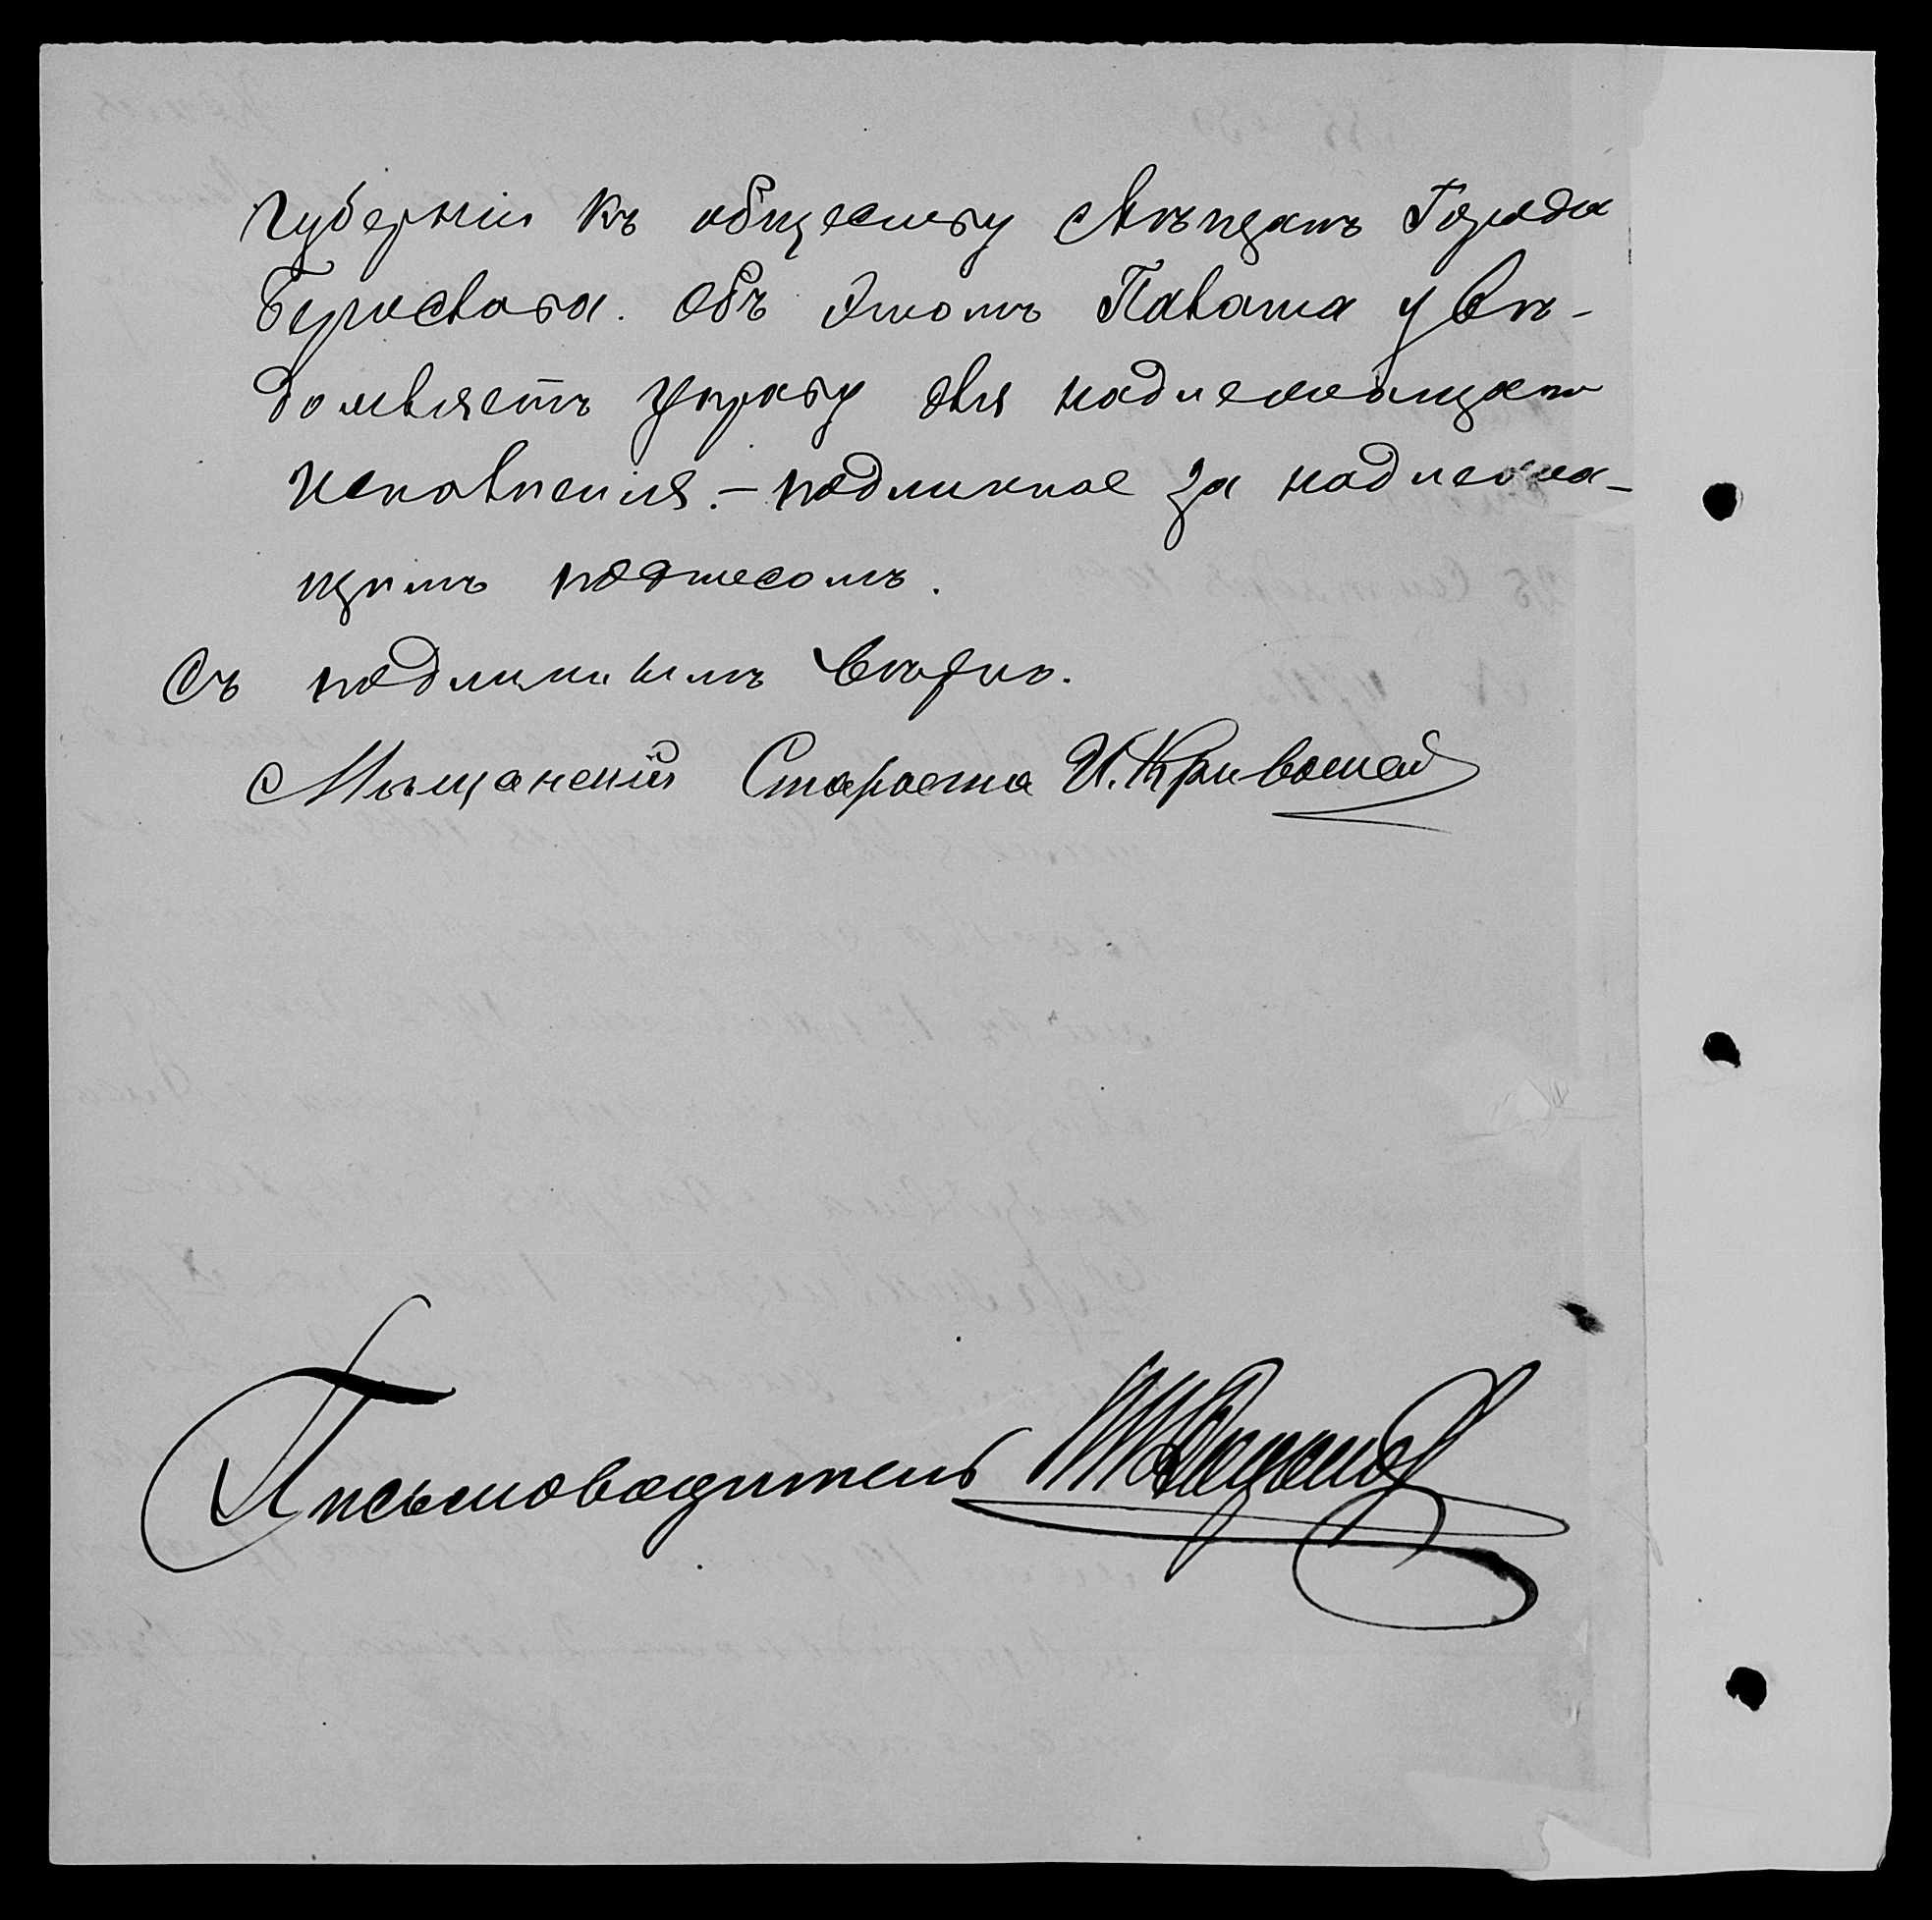 Губерніи къ обществу Мѣщанъ Города
Берислава. Объ этомъ Палата увѣ-
домляетъ Управу для надлежащаго
исполненія. – подлинное за надлежа-
щимъ подписомъ.
Съ подлиннымъ вѣрно.
Мѣщанскій Староста И. Кривошей
Письмоводитель